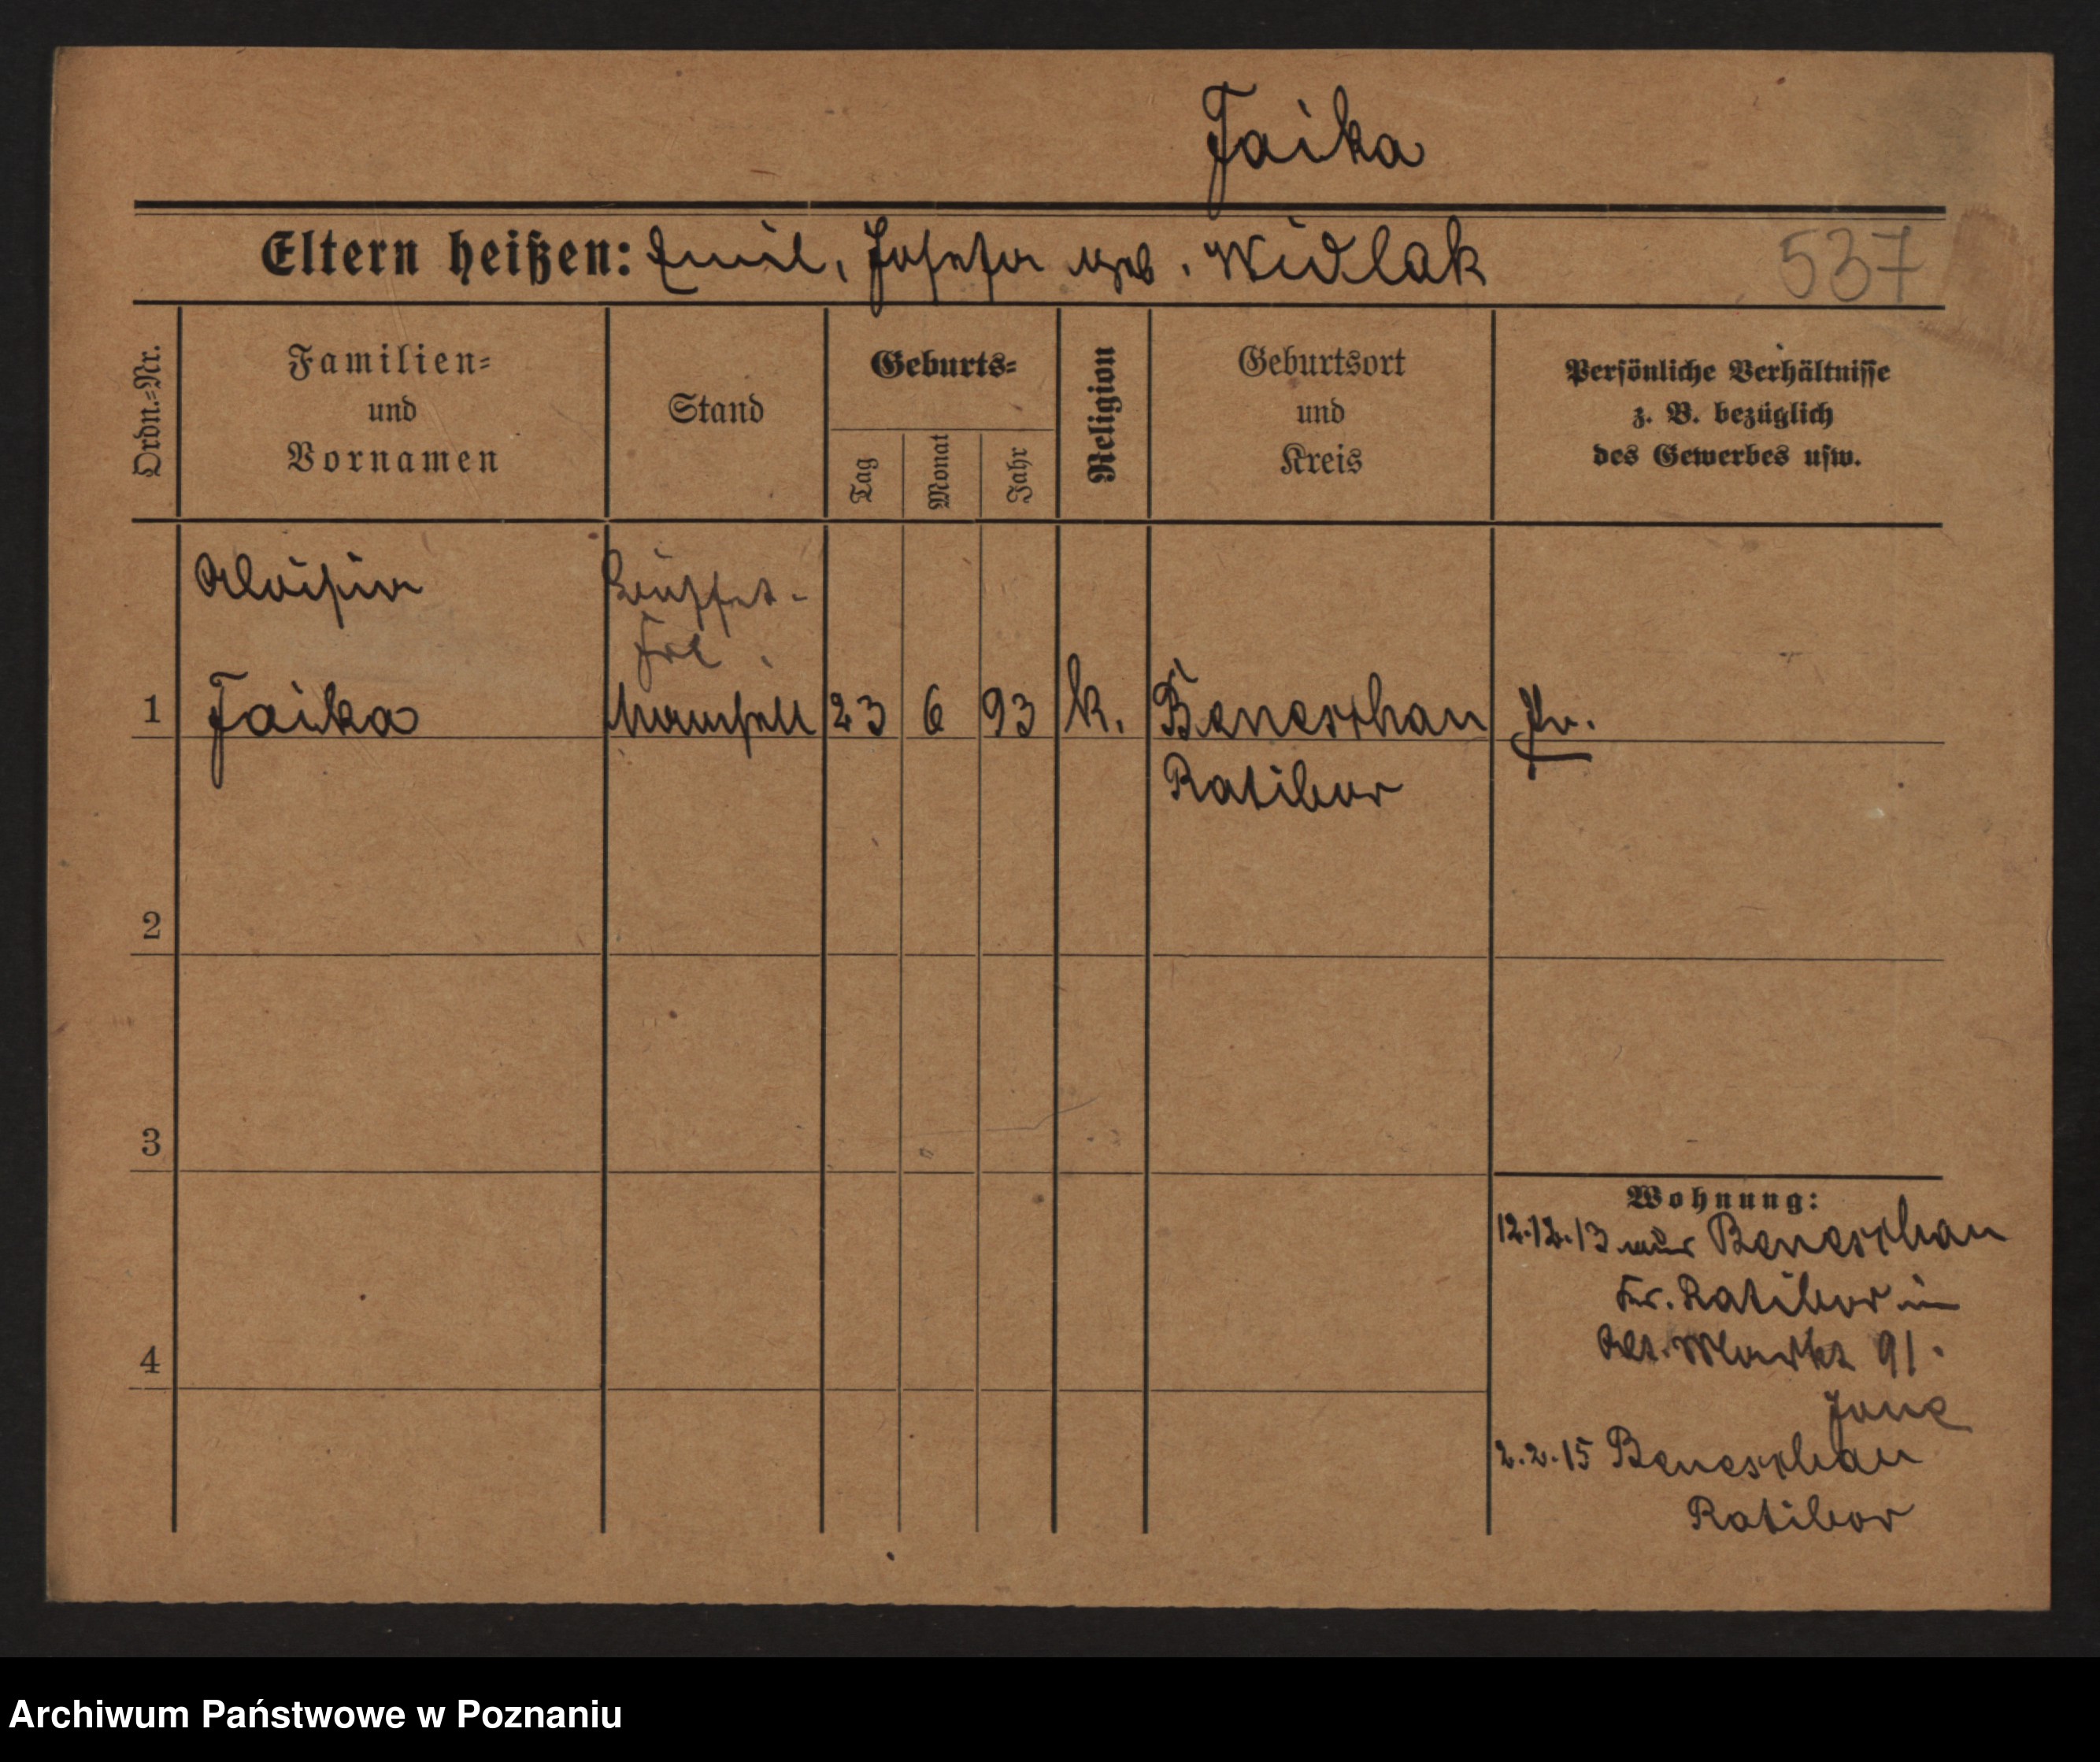 Jaika
Eltern heißen: Emil, Josefa geb. Widlak
537
Ordn.=Nr.
Familien=
und
Vornamen
Stand
Geburts=
Tag
Monat
Jahr
Religion
Geburtsort
und
Kreis
Persönliche Verhältnisse
z. B. bezüglich
des Gewerbes usw.
Aloisia
Büffet-
Frl.
1 Jaika Mamsell 23 6 93 k. Beneschau Pr.
Ratibor
2
3
Wohnung:
12.12.13 aus Beneschau
Kr. Ratibor in
4
Alt. Markt 91.
2.2.15 Beneschau
Ratibor
Archiwum Państwowe w Poznaniu